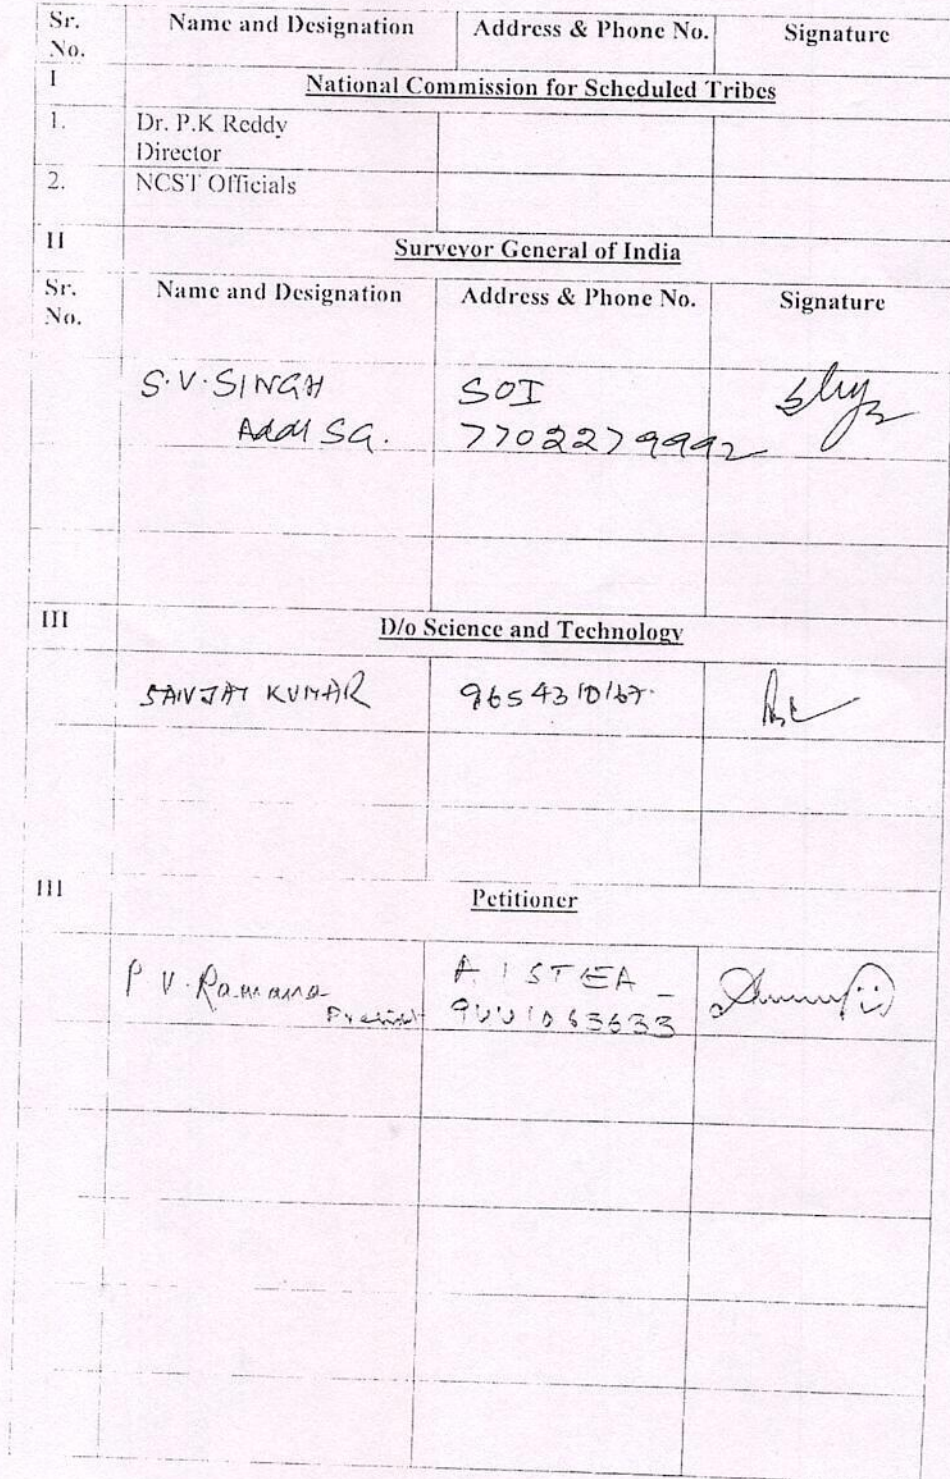 Sr. No. Name and Designation Address & Phone No. Signature
I National Commission for Scheduled Tribes
1. Dr. P.K Reddy
Director
2. NCST Officials
II Surveyor General of India
Sr. No. Name and Designation Address & Phone No. Signature
S.V.SINGH SOI
Addl SG. 7702279992
III D/o Science and Technology
SANJAY KUMAR 9654310167.
III Petitioner
P V. Ramana A I STEA